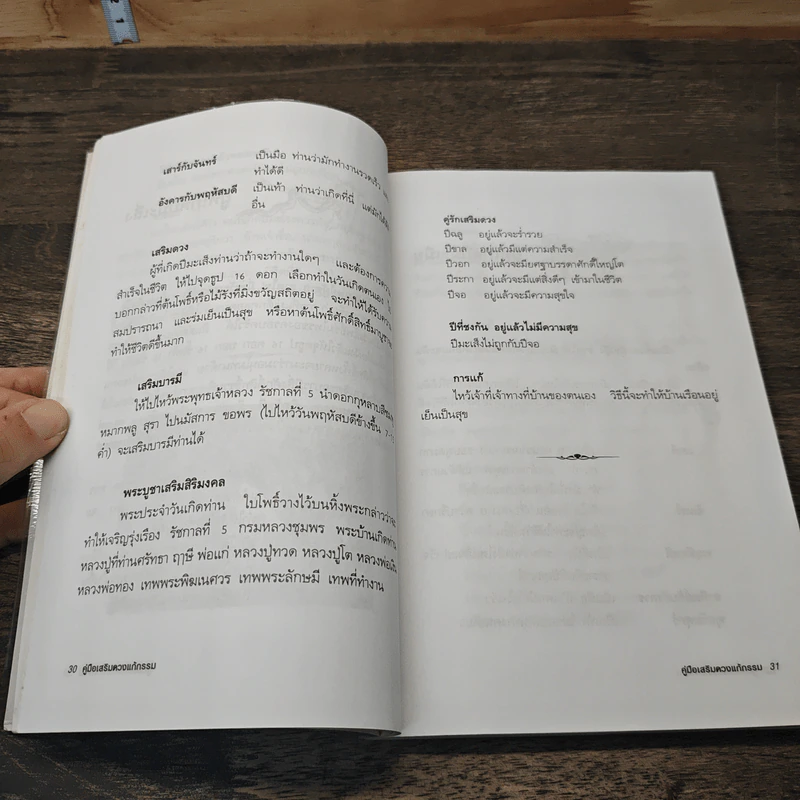 เสาร์กับจันทร์ เป็นมือ ท่านว่ามักทำงานรวดเร็ว
ทำได้ดี
อังคารกับพฤหัสบดี เป็นเท้า ท่านว่าเกิดที่นี่
อื่น
เสริมดวง
ผู้ที่เกิดปีมะเส็งท่านว่าถ้าจะทำงานใดๆ และต้องการความ
สำเร็จในชีวิต ให้ไปจุดธูป 16 ดอก เลือกทำในวันเกิดตนเอง
บอกกล่าวที่ต้นโพธิ์หรือไม้รังที่มิ่งขวัญสถิตอยู่ จะทำให้ได้รับความ
สมปรารถนา และร่มเย็นเป็นสุข หรือหาต้นโพธิ์ศักดิ์สิทธิ์มาบูชา
ทำให้ชีวิตดีขึ้นมาก
เสริมบารมี
ให้ไปไหว้พระพุทธเจ้าหลวง รัชกาลที่ 5 นำดอกกุหลาบสีชมพู
หมากพลู สุรา ไปนมัสการ ขอพร (ไปไหว้วันพฤหัสบดีข้างขึ้น
ค่ำ) จะเสริมบารมีท่านได้
พระบูชาเสริมสิริมงคล
พระประจำวันเกิดท่าน ใบโพธิ์วางไว้บนหิ้งพระกล่าวว่าจะ
ทำให้เจริญรุ่งเรือง รัชกาลที่ 5 กรมหลวงชุมพร พระบ้านเกิดท่าน
หลวงปู่ที่ท่านศรัทธา ฤาษี พ่อแก่ หลวงปู่ทวด หลวงปู่โต หลวงพ่อเงิน
หลวงพ่อทอง เทพพระพิฆเนศวร เทพพระลักษมี เทพที่ทำงาน
30 คู่มือเสริมดวงแก้กรรม
คู่รักเสริมดวง
ปีฉลู อยู่แล้วจะร่ำรวย
ปีขาล อยู่แล้วมีแต่ความสำเร็จ
ปีวอก อยู่แล้วจะมียศฐาบรรดาศักดิ์ใหญ่โต
ปีระกา อยู่แล้วจะมีแต่สิ่งดีๆ เข้ามาในชีวิต
ปีจอ อยู่แล้วจะมีความสุขใจ
ปีที่ชงกัน อยู่แล้วไม่มีความสุข
ปีมะเส็งไม่ถูกกับปีจอ
การแก้
ไหว้เจ้าที่เจ้าทางที่บ้านของตนเอง วิธีนี้จะทำให้บ้านเรือนอยู่
เย็นเป็นสุข
คู่มือเสริมดวงแก้กรรม 31